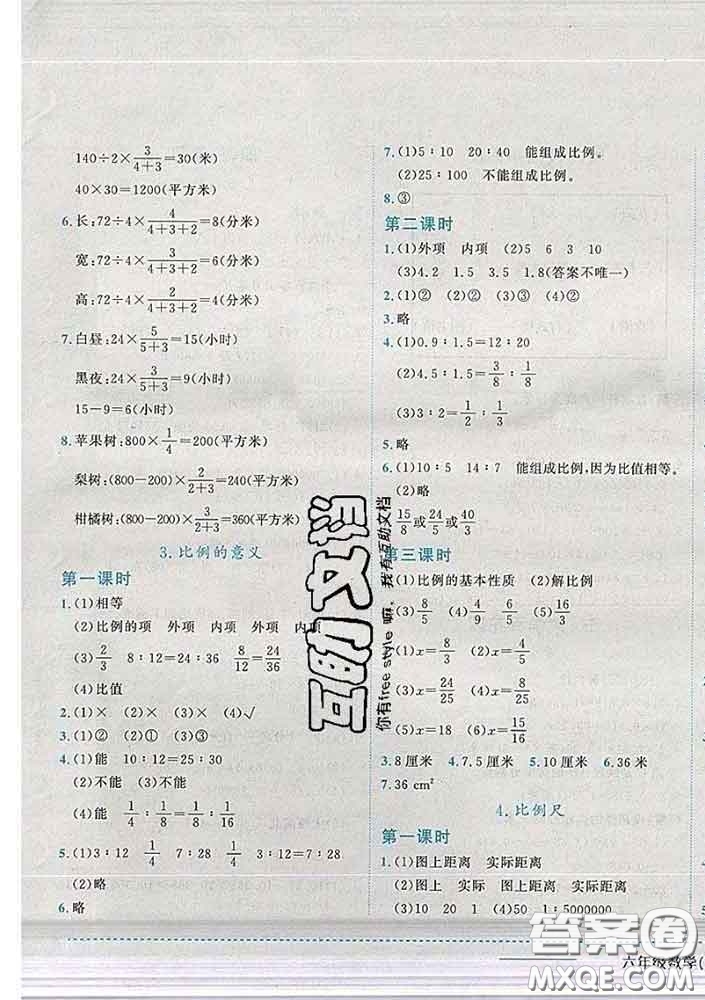 140÷2×3/(4+3)=30(米)
40×30=1200(平方米)
6.长:72÷4×4/(4+3+2)=8(分米)
宽:72÷4×3/(4+3+2)=6(分米)
高:72÷4×2/(4+3+2)=4(分米)
7.白昼:24×5/(5+3)=15(小时)
黑夜:24×3/(5+3)=9(小时)
15-9=6(小时)
8.苹果树:800×1/4=200(平方米)
梨树:(800-200)×2/(2+3)=240(平方米)
柑橘树:(800-200)×3/(2+3)=360(平方米)
3.比例的意义
第一课时
1.(1)相等
(2)比例的项 外项 内项 外项 内项
(3)2/3 8∶12=24∶36 8/12=24/36
(4)比值
2.(1)× (2)× (3)× (4)√
3.(1)② (2)① (3)③
4.(1)能 10∶12=25∶30
(2)不能 (3)不能
(4)能 1/4∶1/8=1/8∶1/16
5.(1)3∶12 1/4 7∶28 1/4 3∶12=7∶28
(2)略
6.略
7.(1)5∶10 20∶40 能组成比例。
(2)25∶100 不能组成比例。
8.③
第二课时
1.(1)外项 内项 (2)5 6 3 10
(3)4.2 1.5 3.5 1.8(答案不唯一)
2.(1)② (2)② (3)③ (4)②
3.略
4.(1)0.9∶1.5=12∶20
(2)4.5∶1.5=3/8∶1/8
(3)3∶2=1/2∶1/3
5.略
6.(1)10∶5 14∶7 能组成比例,因为比值相等。
(2)略
7.15/8或24/5或40/3
第三课时
1.(1)比例的基本性质 (2)解比例
(3)8/5 (4)4/9 6/5 (5)16/3
2.(1)x=8/3 (2)x=4/5
(3)x=24/25 (4)x=8/25
(5)x=4 (6)x=15/16
3.8厘米 4.7.5厘米 5.10厘米 6.36米
7.36 cm²
4.比例尺
第一课时
1.(1)图上距离 实际距离
(2)图上 实际 图上距离 实际距离
(3)10 20 1 (4)50 1∶5000000
六年级数学(
互助文档
你有free style 嘛, 我有互助文档
答案圈
MXQE.COM